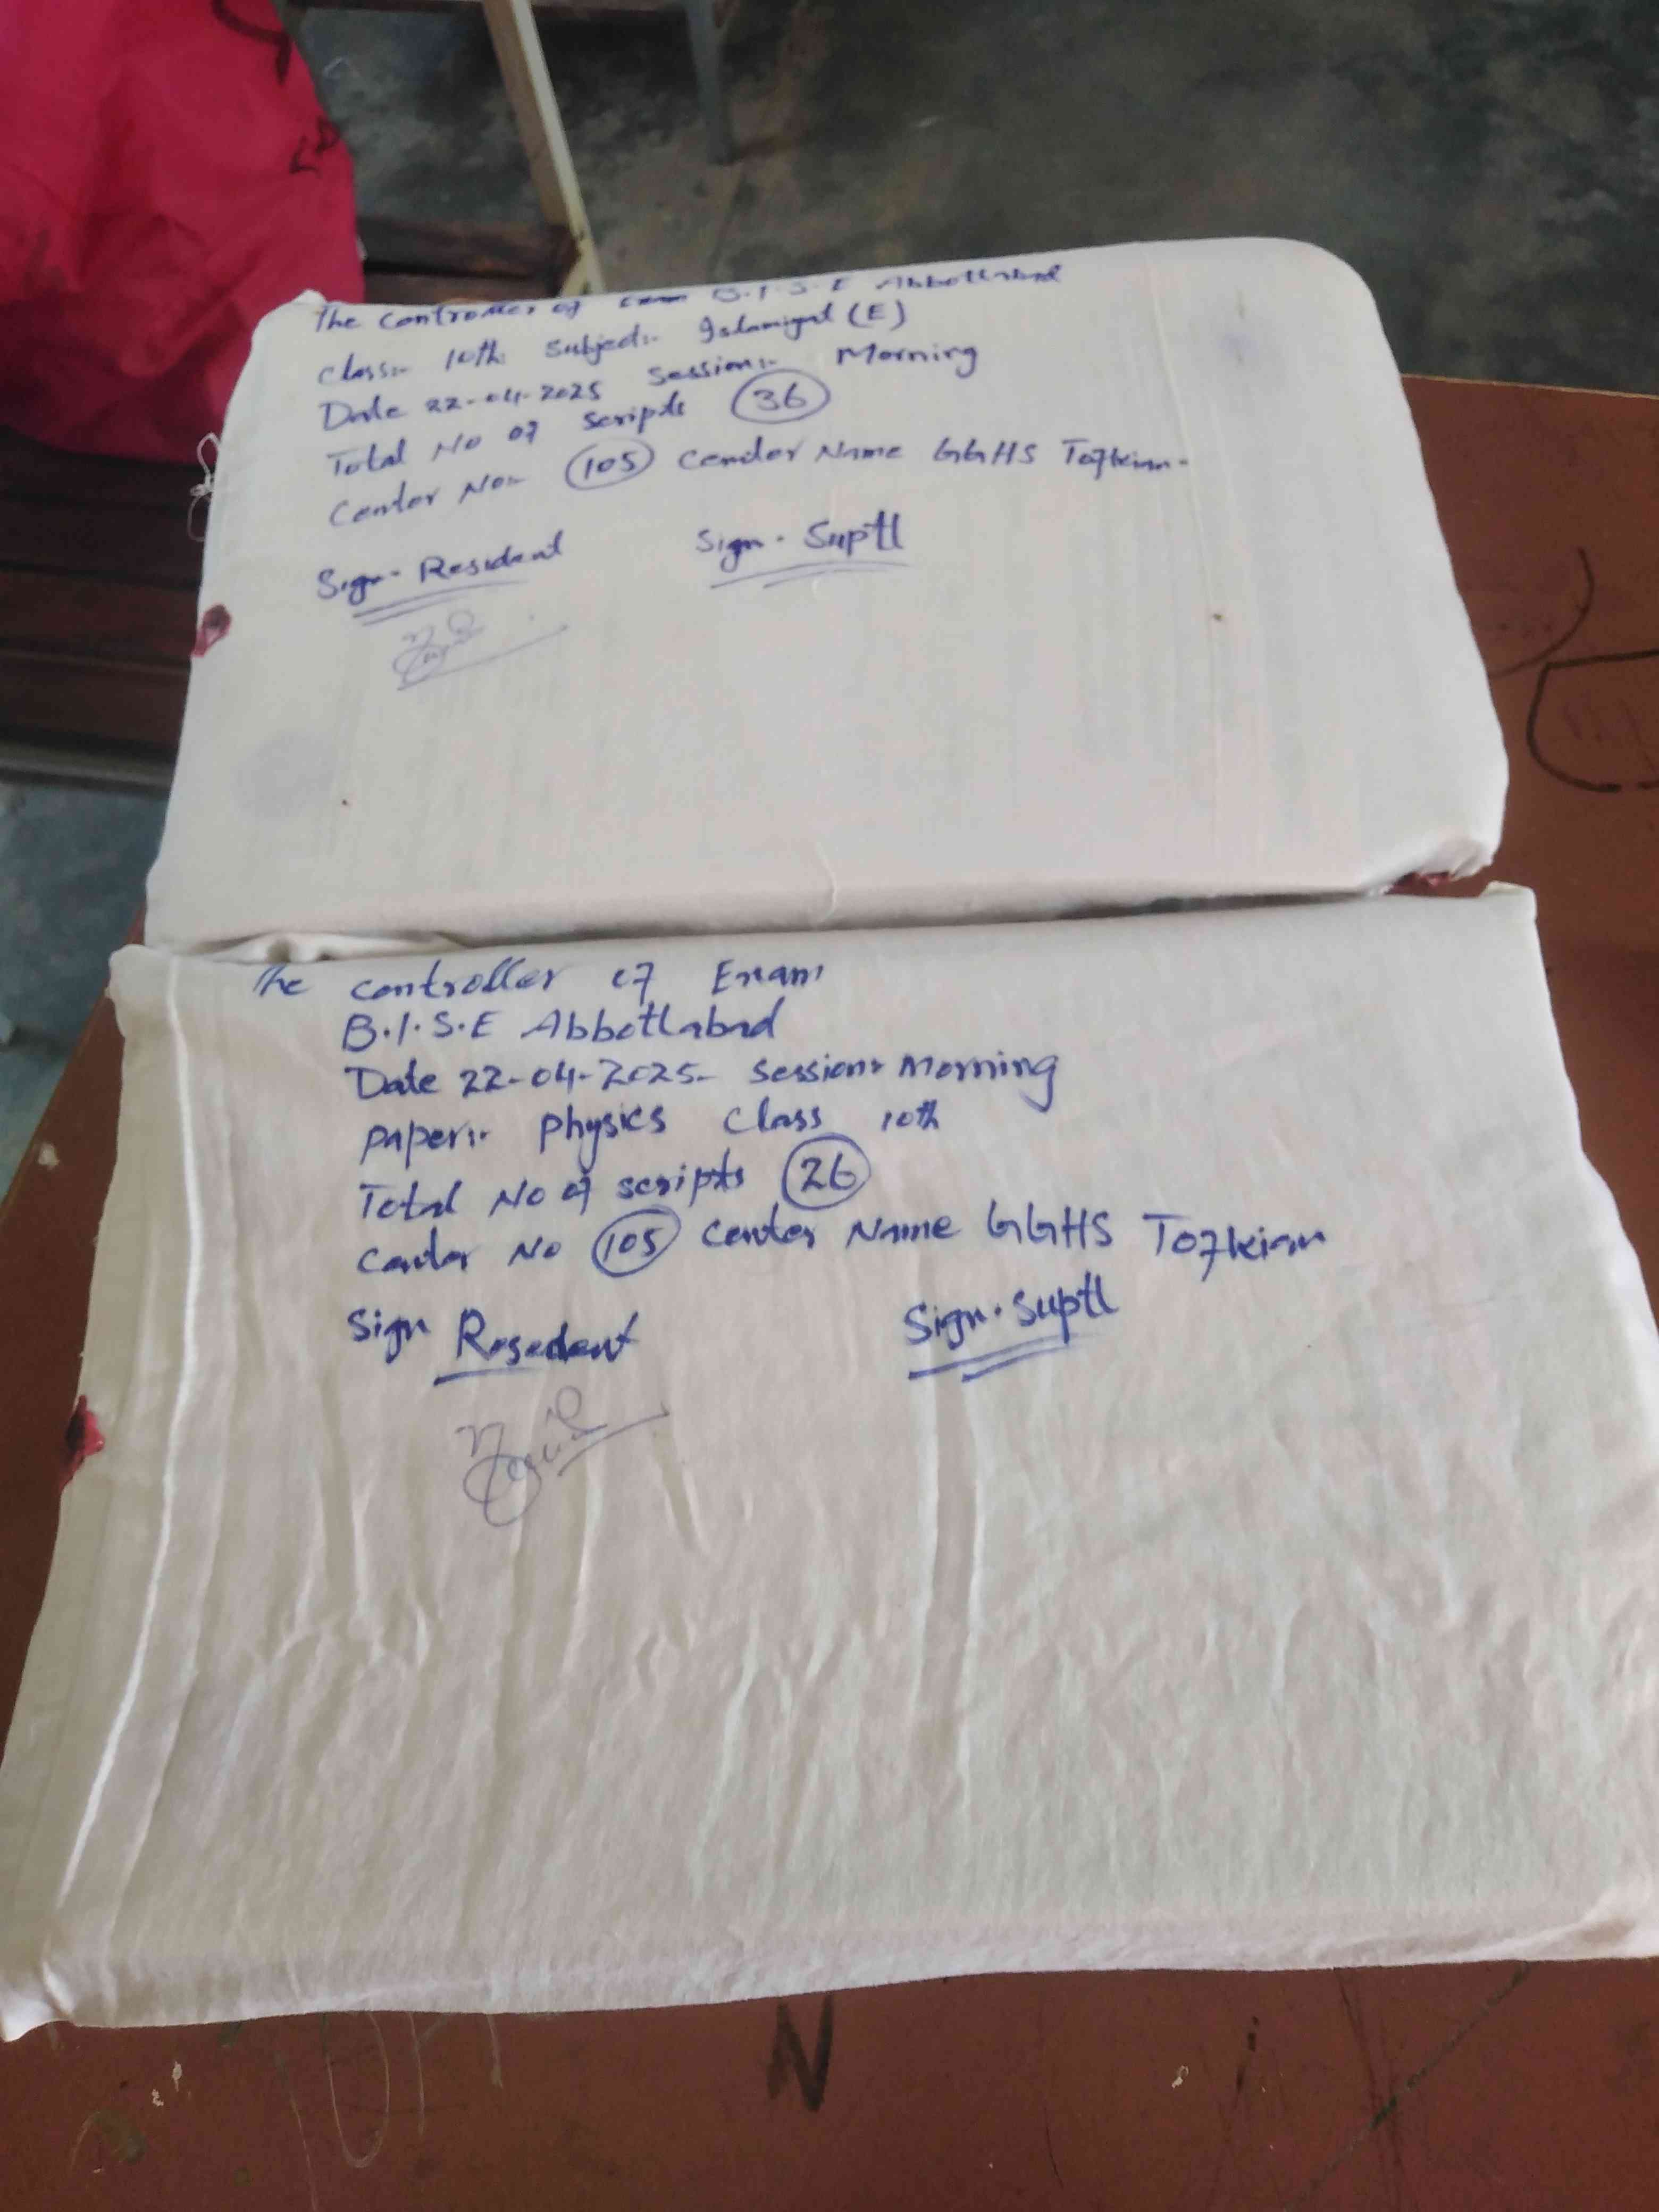 The Controller of Exam B.I.S.E Abbottabad
Class:- 10th Subject:- Islamiyat (E)
Date 22-04-2025 Session:- Morning
Total No of scripts 36
Center No:- 105 Center Name GGHS Tofkian-
Sign- Resident Sign. Suptl
The controller of Exam
B.I.S.E Abbottabad
Date 22-04-2025- Session:- Morning
Paper:- Physics Class 10th
Total No of scripts 26
Center No 105 Center Name GGHS Tofkian
Sign Resedent Sign. Suptl
N